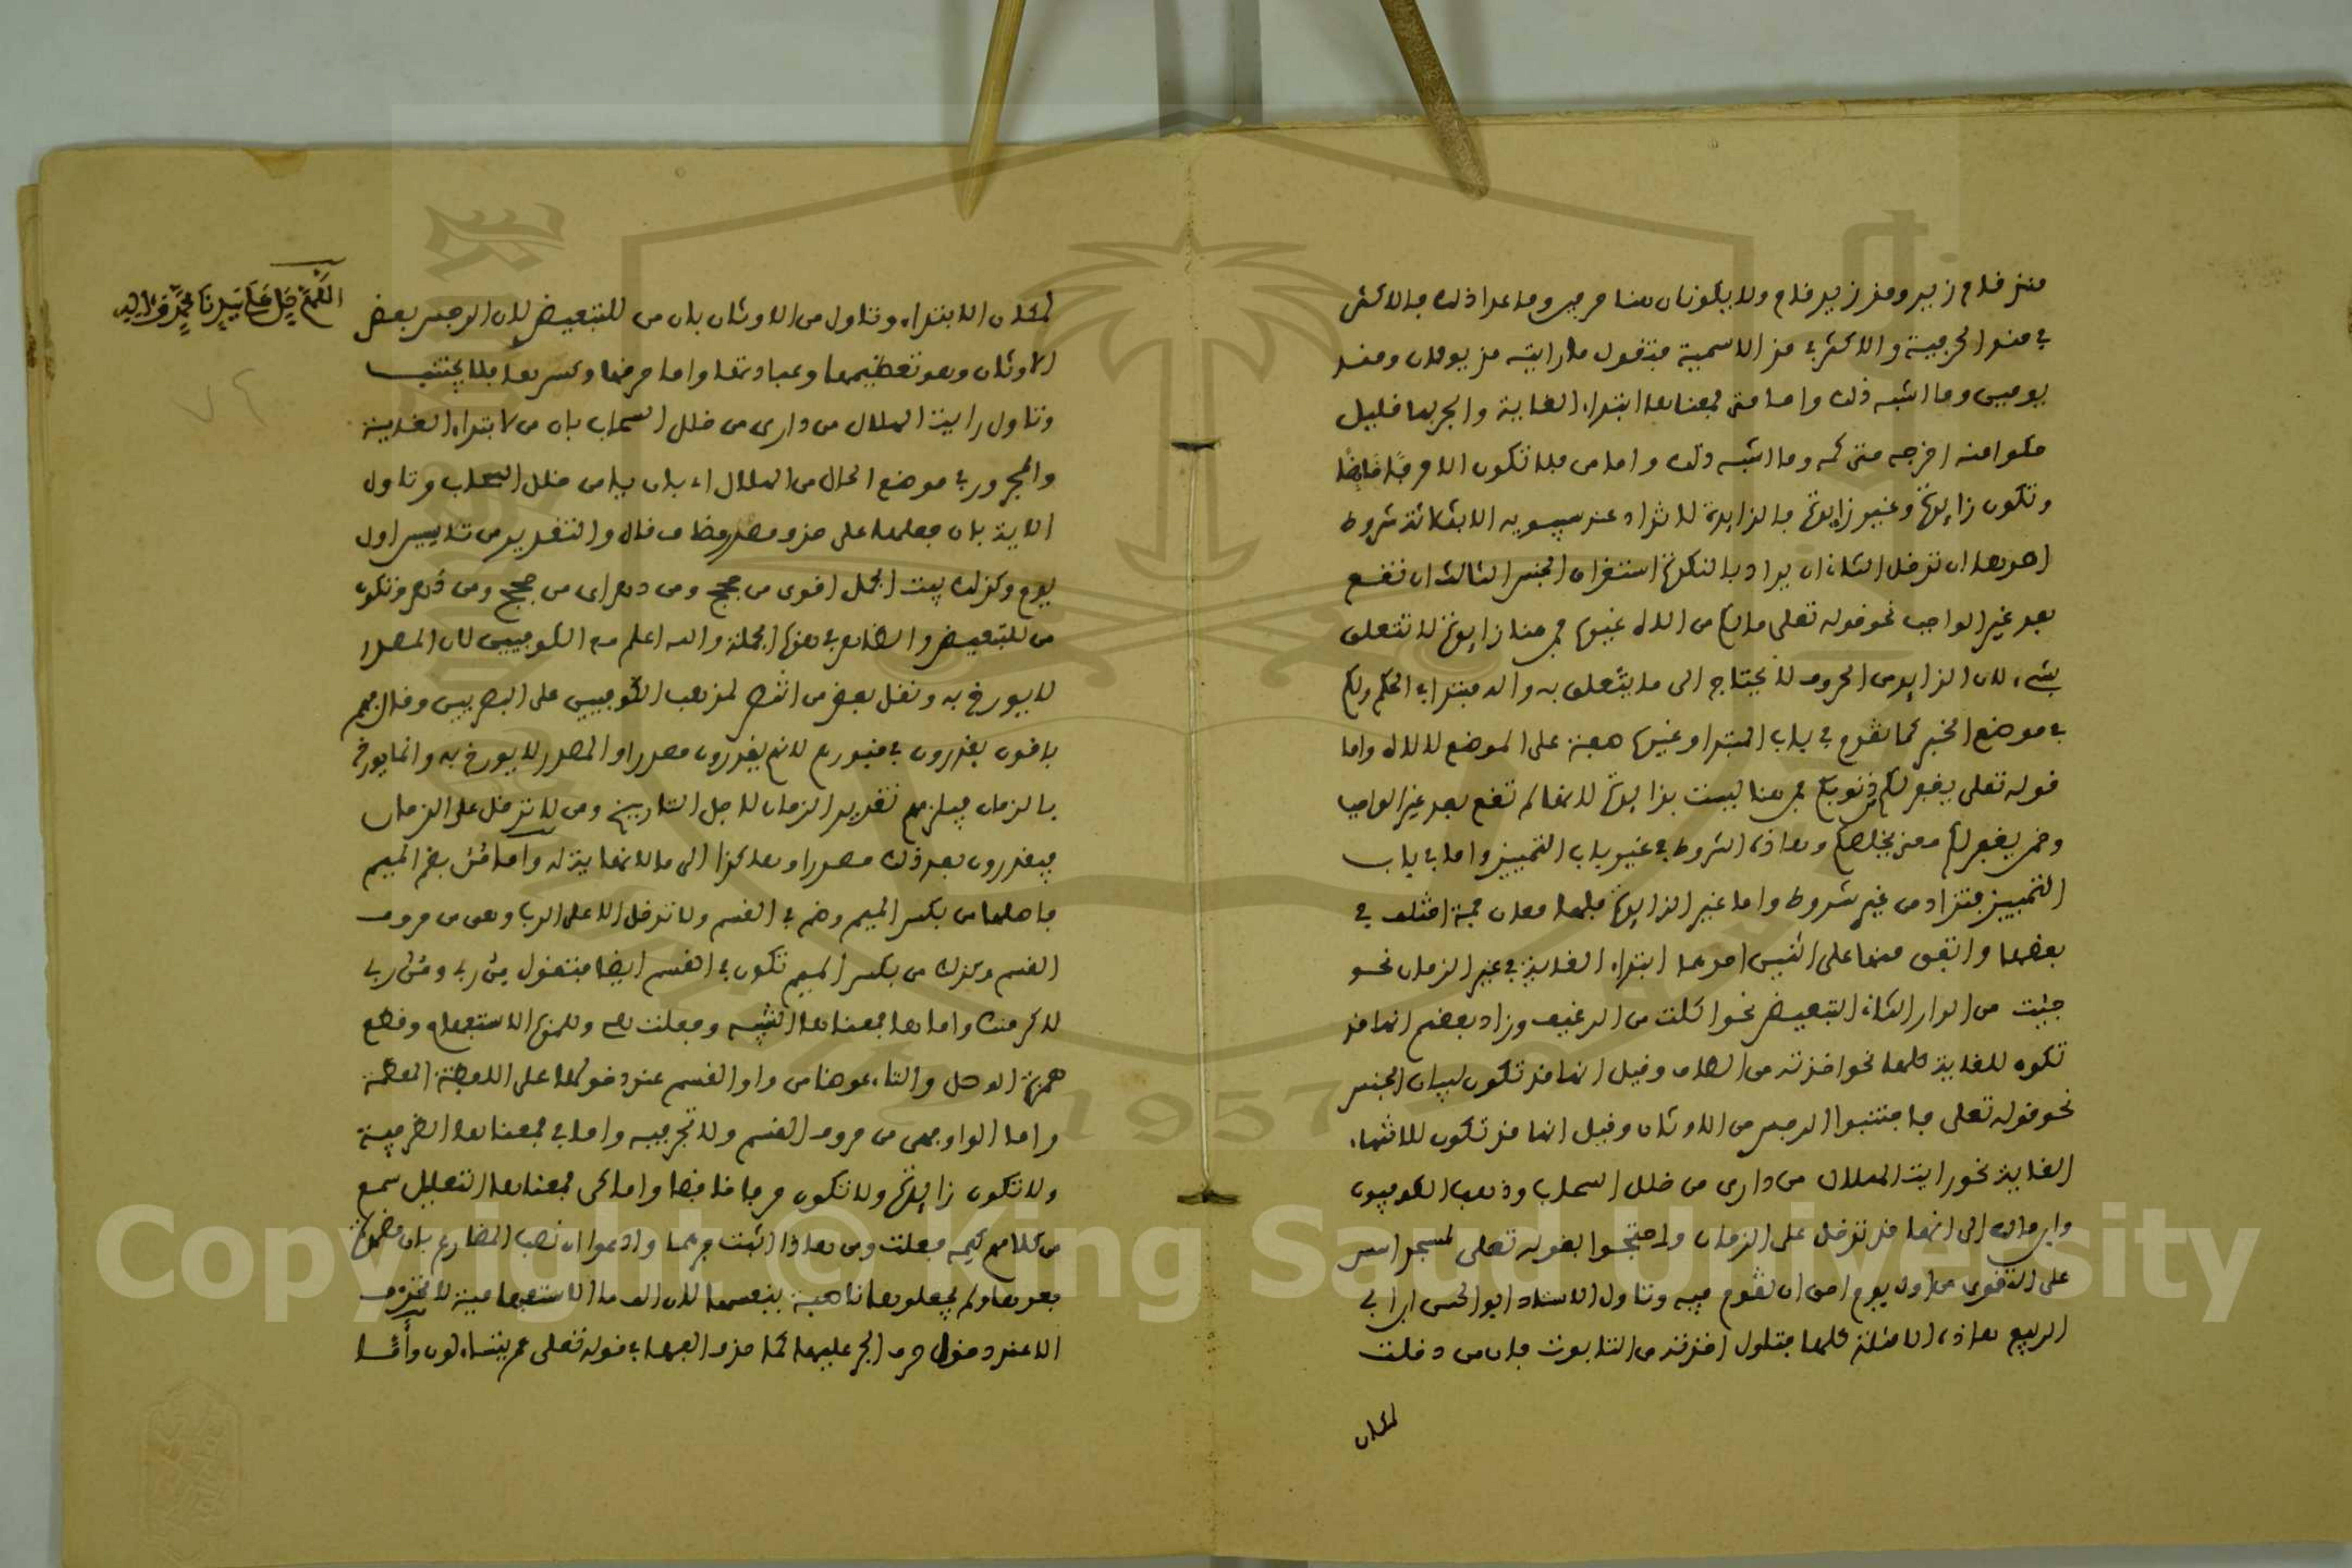 منذ قام زيد ومذ زيد قام ولا يكونان هنا حرفين وما عدا ذلك فالاكثر
في منذ الحرفية والاكثر في مذ الاسمية فتقول ما رايته مذ يومان ومنذ
يومين وما اشبه ذلك واما متى فمعناها ابتداء الغاية والجر بها قليل
حكوا منه اخرجه متى كمه وما اشبه ذلك واما من فلا تكون الا حرفا خافضا
وتكون زايدة وغير زايدة فالزايدة لا تزاد عند سيبويه الا بثلاثة شروط
احدها ان تدخل الثاني ان يراد بالنكرة استغراق الجنس الثالث ان تقع
بعد غير الواجب نحو قوله تعلى ما لكم من اله غيره فمن هنا زايدة لا تتعلق
بشيء لان الزايد من الحروف لا يحتاج الى ما يتعلق به واله مبتدا في الحكم ولكم
في موضع الخبر كما تقدم في باب المبتدا وغيره صفة على الموضع لا لاله واما
قوله تعلى يغفر لكم من ذنوبكم فمن هنا ليست بزايدة لانها لم تقع بعد غير الواجب
وضمن يغفر لكم معنى يخلصكم وهاذه الشروط في غير باب التمييز واما في باب
التمييز فتزاد من غير شروط واما غير الزايدة فلها معان جمة اختلف في
بعضها واتفق منها على اثنين احدهما ابتداء الغاية في غير الزمان نحو
جئت من الدار الثاني التبعيض نحو اكلت من الرغيف وزاد بعضهم انها قد
تكون للغاية كلها نحو اخذته من الصندوق وقيل انها قد تكون لبيان الجنس
نحو قوله تعلى فاجتنبوا الرجس من الاوثان وقيل انها قد تكون لانتهاء
الغاية نحو رايت الهلال من داري من خلل السحاب وذهب الكوفيون
وابن مالك الى انها قد تدخل على الزمان واحتجوا بقوله تعلى لمسجد اسس
على التقوى من اول يوم احق ان تقوم فيه وتاول الاستاذ ابو الحسن ابن ابي
الربيع هاذه الامثلة كلها فتاول اخذته من التابوت بان من دخلت
لمكان
اللهم صل على سيدنا محمد وءاله
لمكان الابتداء وتاول من الاوثان بان من للتبعيض لان الرجس بعض
الاوثان وهو تعظيمها وعبادتها واما حرقها وكسرها فلا يجتنب
وتاول رايت الهلال من داري من خلل السحاب بان من لابتداء الغاية
والمجرور في موضع الحال من الهلال اي باديا من خلل السحاب وتاول
الاية بان جعلها على حذف مضاف قال والتقدير من تاسيس اول
يوم وكذلك بيت الجمل اقوين من حجج ومن دهر اي من حجج ومن دهر وتكون
من للتبعيض والظاهر في هذه الجملة والله اعلم مع الكوفيين لان المصدر
لا يورخ به ونقل بعض من انتصر لمذهب الكوفيين على البصريين وقال هم
باقون يقدرون في فيورم لانهم يقدرون مصدرا والمصدر لا يورخ به وانما يورخ
بالزمان فيلزمهم تقدير الزمان لاجل التاريخ ومن لا تدخل على الزمان
فيقدرون بعد ذلك مصدرا وهكذا الى ما لا نهاية له واما من بضم الميم
فاصلها من بكسر الميم وضم في القسم ولا تدخل الا على الرب وهي من حروف
القسم وكذلك من بكسر الميم تكون في القسم ايضا فتقول من ربي ومن ربي
لاكرمنك واما ها فمعناها التنبيه وجعلت هي وهمزة الاستفهام وقطع
همزة الوصل والتاء عوضا من واو القسم عند دخولها على اللفظة المعظمة
واما الواو فهي من حروف القسم ولا تجر فيه واما في فمعناها الظرفية
ولا تكون زايدة ولا تكون حرفا خافضا واما كي فمعناها التعليل سمع
من كلامهم كيمه فعلت ومن هاذا اثبت جرها وادعوا ان نصب المضارع بان مضمرة
بعدها ولم يجعلوها ناصبة بنفسها لان الف ما الاستفهامية لا تحذف
الا عند دخول حرف الجر عليها كما حذف الفها في قوله تعلى عم يتساءلون وانما